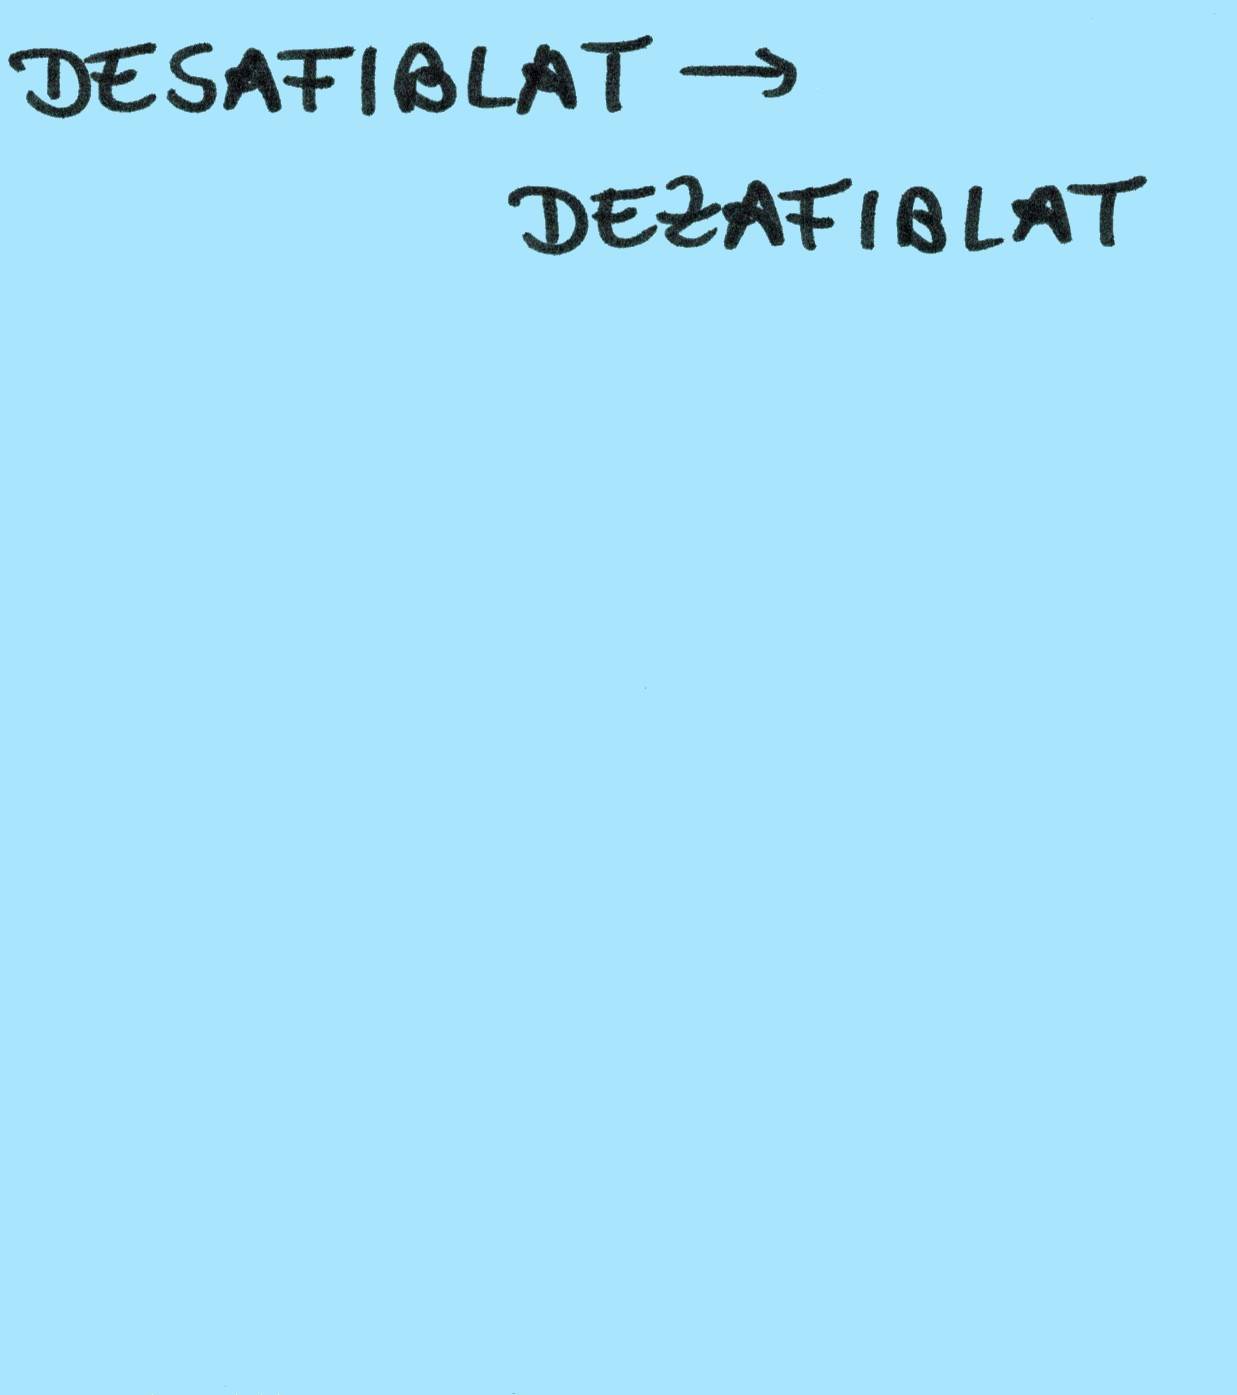 DESAFIBLAT →
DEZAFIBLAT